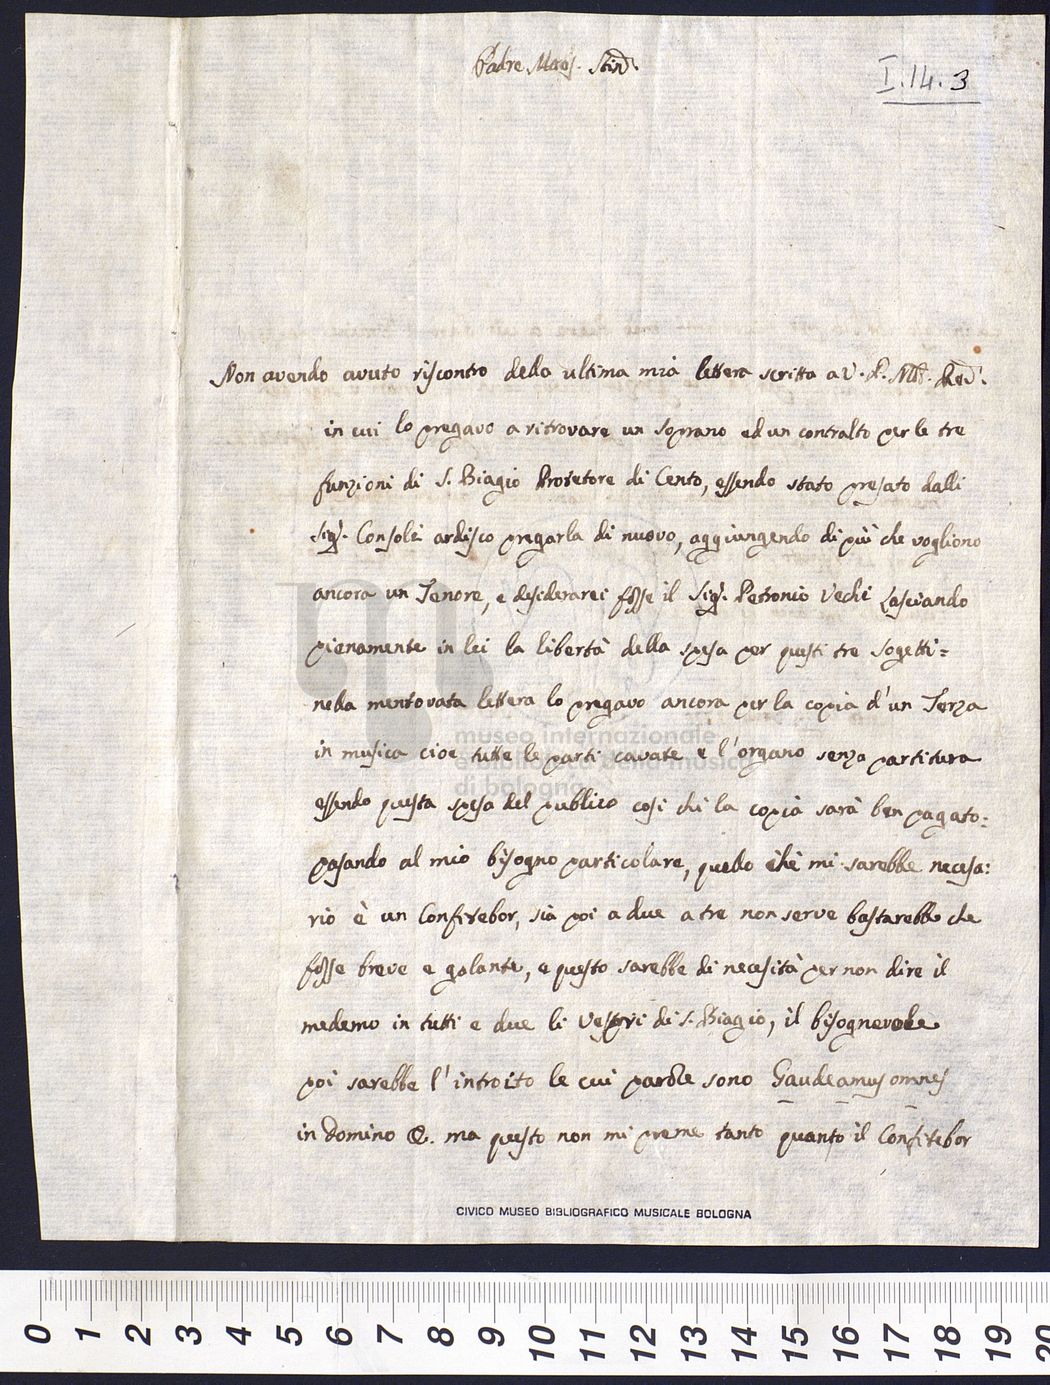 Padre Maes. Stim.
I.14.3
Non avendo avuto riscontro della ultima mia lettera scritta a V. P. M. Red.
in cui lo pregavo a ritrovare un soprano ed un contralto per le tre
funzioni di S. Biagio Protetore di Cento, essendo stato presato dalli
Sig. Consoli ardisco pregarla di nuovo, aggiungendo di più che vogliono
ancora un Tenore, e desiderarei fosse il Sig. Petronio Vechi Lasciando
pienamente in lei la libertà della spesa per questi tre sogetti=
nella mentovata lettera lo pregavo ancora per la copia d'un Terza
in musica cioe tutte le parti cavate e l'organo senza partitura
essendo questa spesa del publico così chi la copià sarà ben pagato.
pasando al mio bisogno particolare, quello chè mi sarebbe necesa:
rio è un Confitebor, sia poi a due a tre non serve bastarebbe che
fosse breve e galante, e questo sarebbe di necesità per non dire il
medemo in tutti e due li Vespri di S. Biagio, il bisognevole
poi sarebbe l'introito le cui parole sono Gaudeamus omnes
in Domino &. ma questo non mi preme tanto quanto il Confitebor
museo internazionale
e biblioteca della musica
di bologna
CIVICO MUSEO BIBLIOGRAFICO MUSICALE BOLOGNA
0 1 2 3 4 5 6 7 8 9 10 11 12 13 14 15 16 17 18 19 20